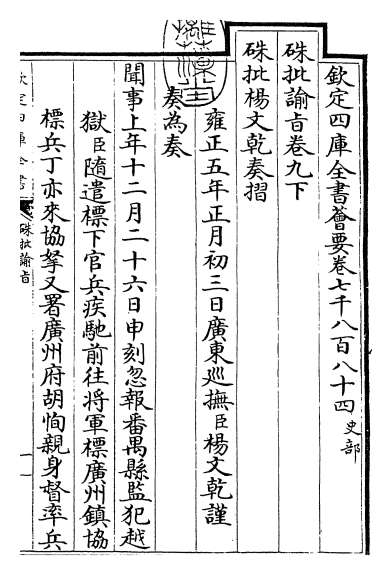 欽定四庫全書薈要卷七千八百八十四 史部
硃批諭旨卷九下
硃批楊文乾奏摺
雍正五年正月初三日廣東廵撫臣楊文乾謹
奏為奏
聞事上年十二月二十六日申刻忽報番禺縣監犯越
獄臣隨遣標下官兵疾馳前往將軍標廣州鎮協
標兵丁亦來協拏又署廣州府胡恂親身督率兵
欽定四庫全書
硃批諭旨
一